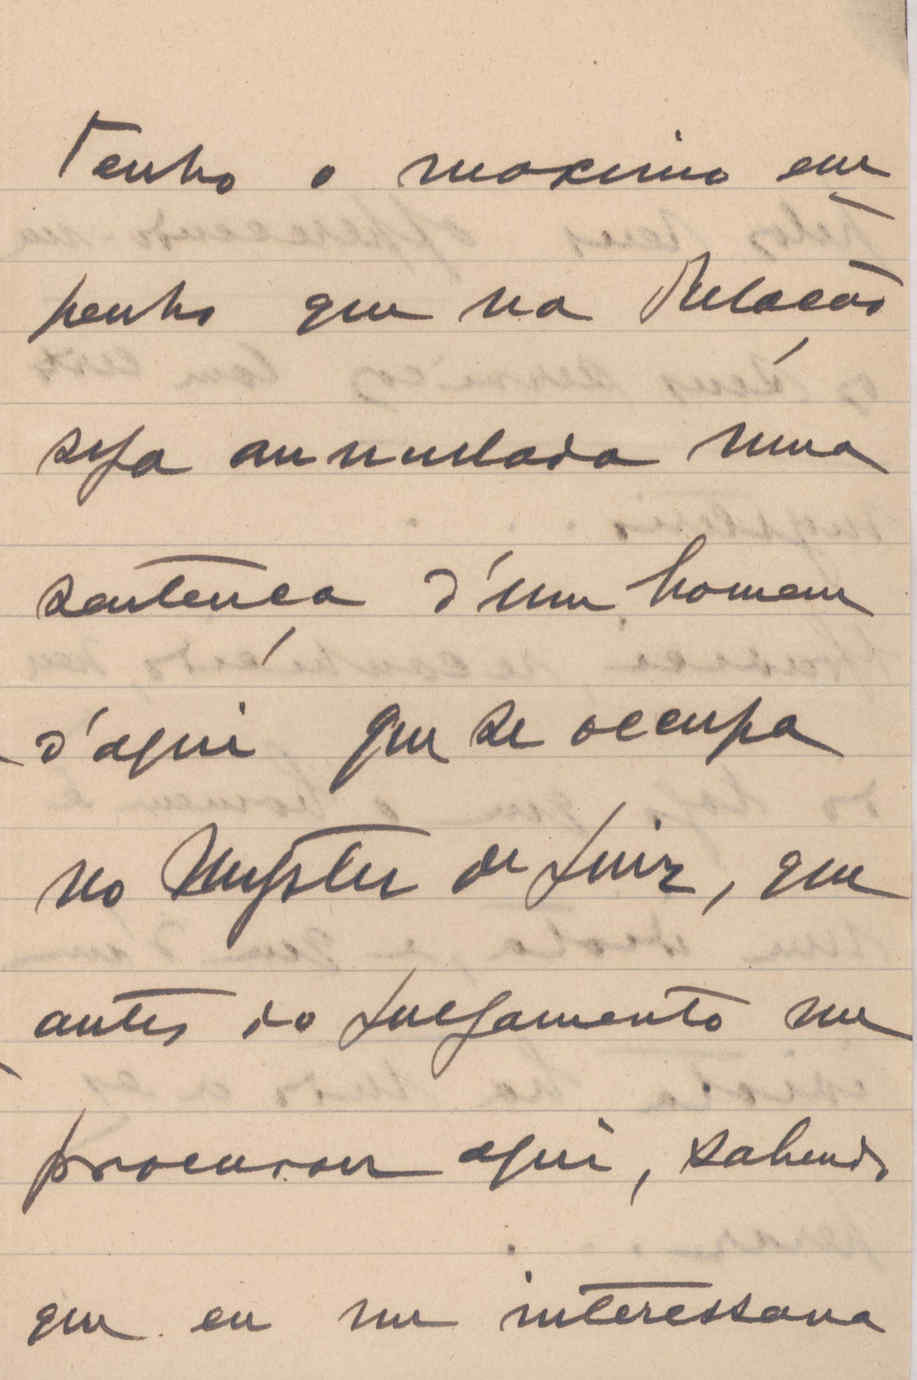 Tenho o maximo em
penho que na Relação
seja annullada uma
sentença d'um homem
d'aqui que se occupa
no Myster de Juiz, que
antes do Julgamento me
procurou aqui, sabendo
que eu me interessava